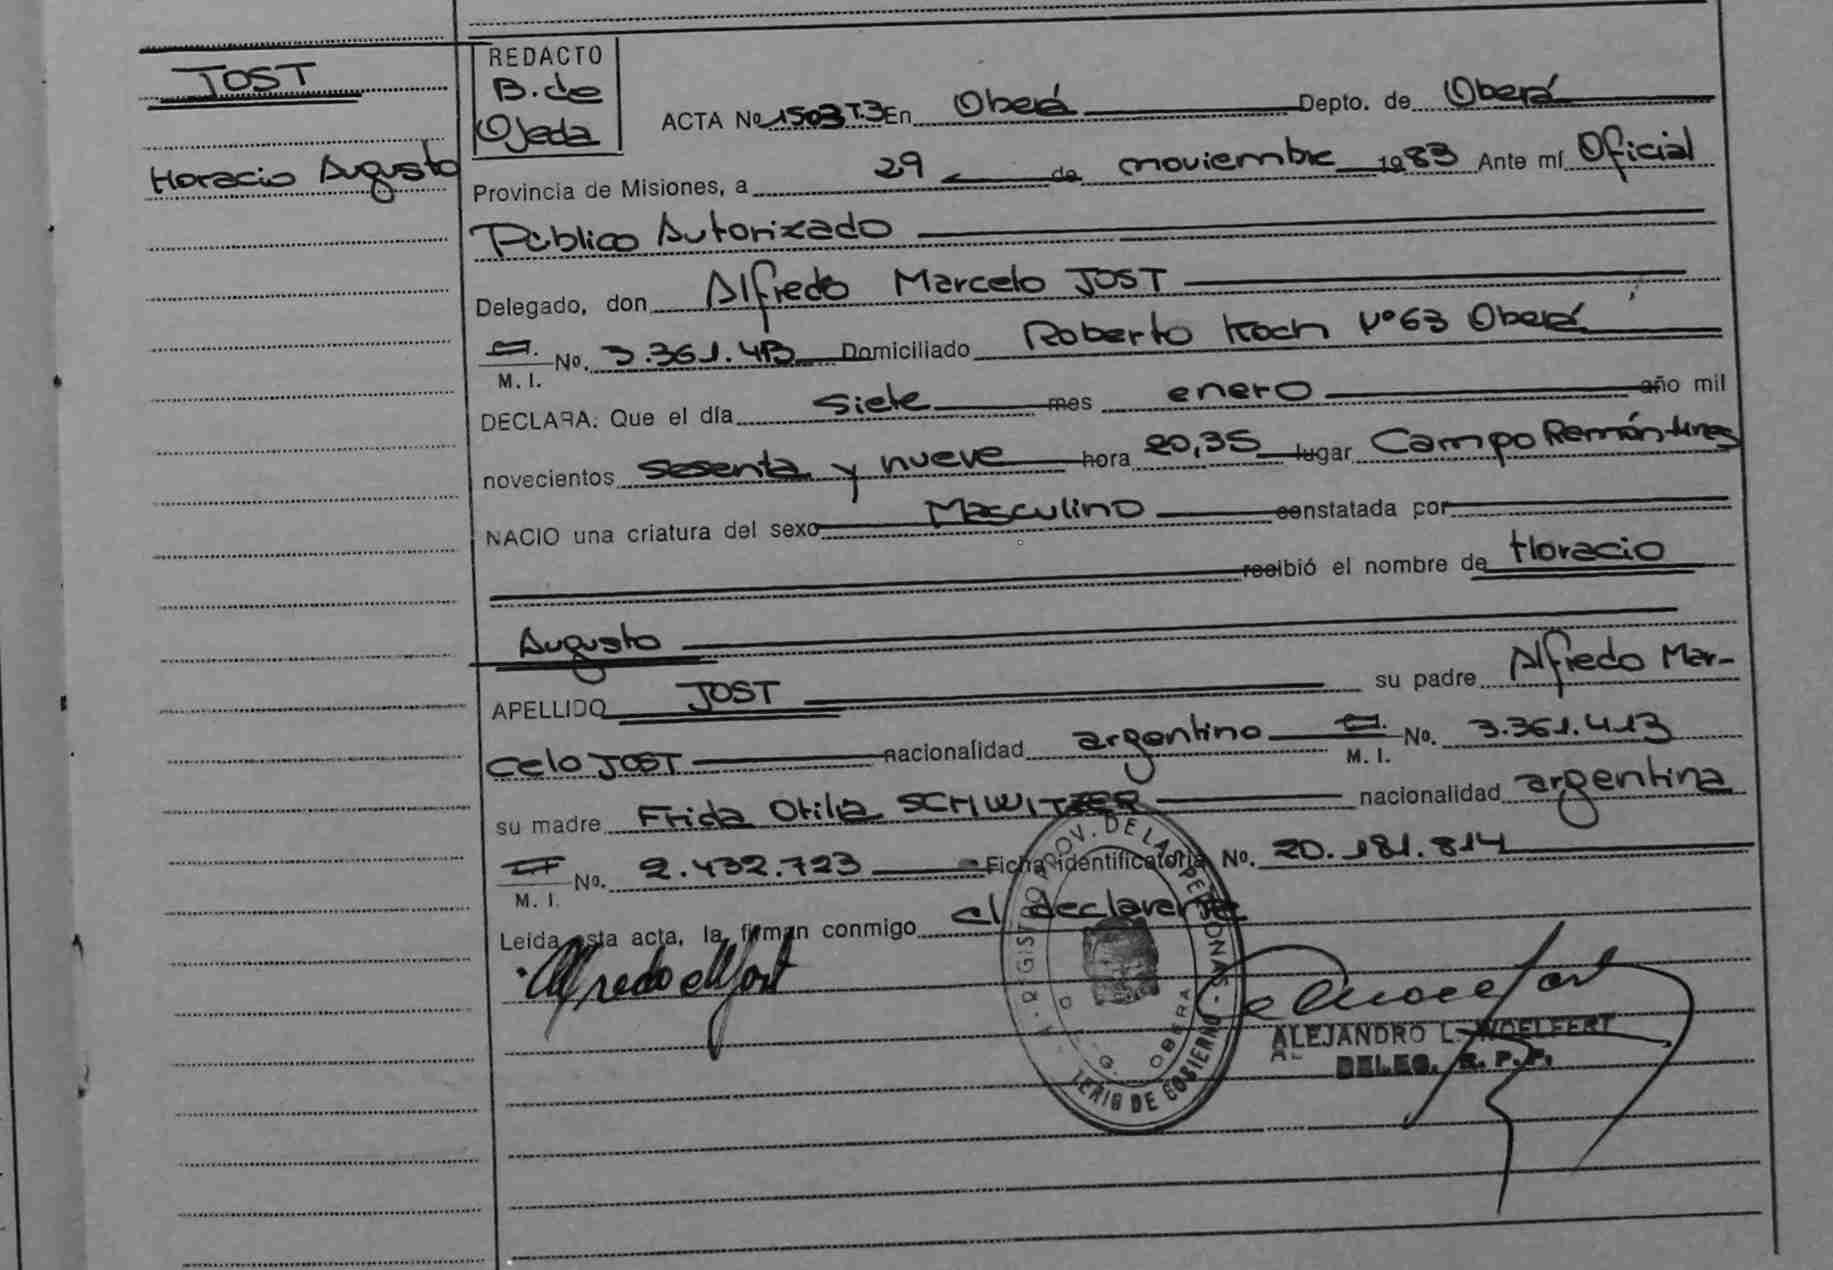 JOST
Horacio Augusto
REDACTO
B. de
Ojeda
ACTA No 1503 T.3 En Oberá Depto. de Oberá
Provincia de Misiones, a 29 de noviembre 1983 Ante mí Oficial
Público Autorizado
Delegado, don Alfredo Marcelo JOST
M. I. No. 3.361.413 Domiciliado Roberto Koch Nº 63 Oberá
DECLARA: Que el día siete mes enero año mil
novecientos sesenta y nueve hora 20,35 lugar Campo Ramón-Mnes
NACIO una criatura del sexo Masculino constatada por
recibió el nombre de Horacio
Augusto
APELLIDO JOST su padre Alfredo Mar-
celo JOST nacionalidad argentino M. I. No. 3.361.413
su madre Frida Otilia SCHWITZER nacionalidad argentina
M. I. No. 2.432.723 Ficha identificatoria No. 20.181.814
Leída esta acta, la firman conmigo el declarante
Alfredo M Jost
ALEJANDRO L. WOELFERT
DELEG. R. P. P.
PROV. DE LAS PERSONAS
OBERA
DE GOBIERNO